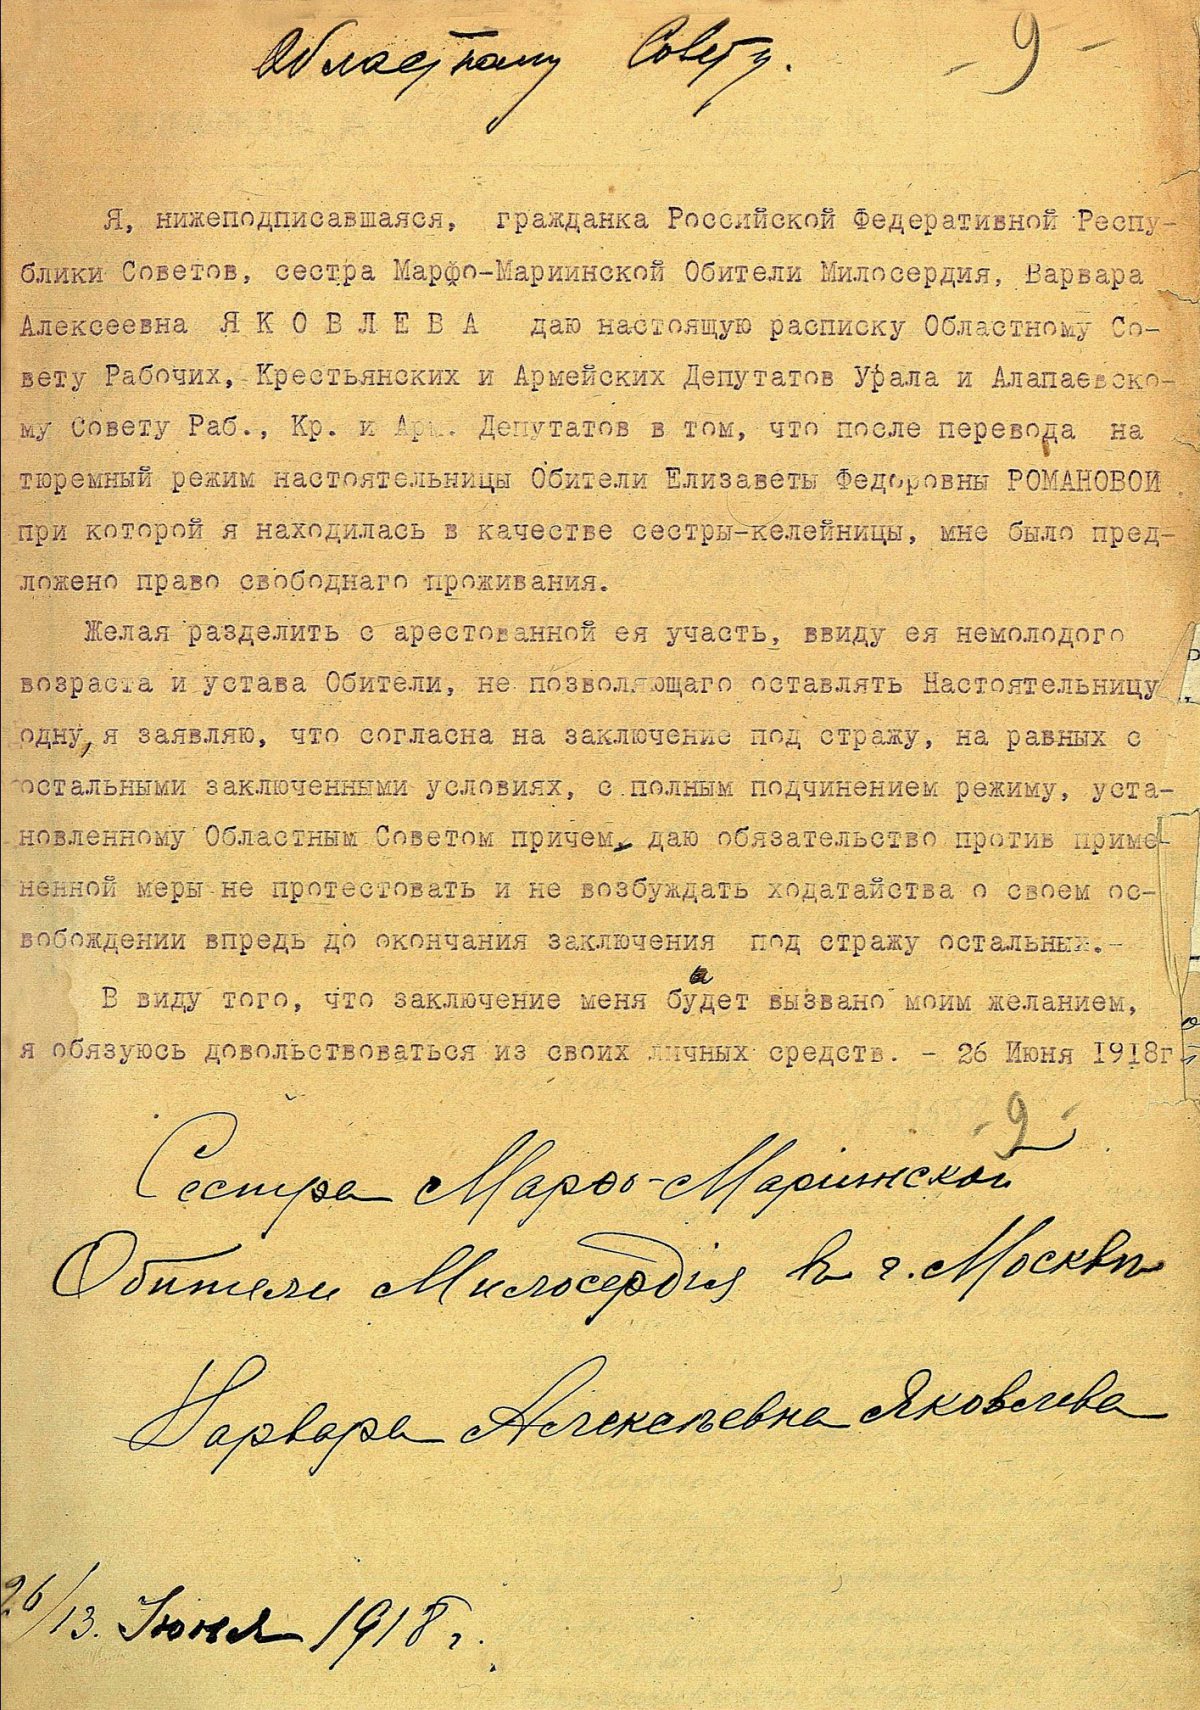 Областному Совету.
- 9 -
Я, нижеподписавшаяся, гражданка Российской Федеративной Респу-
блики Советов, сестра Марфо-Мариинской Обители Милосердия, Варвара
Алексеевна Я К О В Л Е В А даю настоящую расписку Областному Со-
вету Рабочих, Крестьянских и Армейских Депутатов Урала и Алапаевско-
му Совету Раб., Кр. и Арм. Депутатов в том, что после перевода на
тюремный режим настоятельницы Обители Елизаветы Федоровны РОМАНОВОЙ
при которой я находилась в качестве сестры-келейницы, мне было пред-
ложено право свободнаго проживания.
Желая разделить с арестованной ея участь, ввиду ея немолодого
возраста и устава Обители, не позволяющаго оставлять Настоятельницу
одну, я заявляю, что согласна на заключение под стражу, на равных с
остальными заключенными условиях, с полным подчинением режиму, уста-
новленному Областным Советом причем, даю обязательство против приме-
ненной меры не протестовать и не возбуждать ходатайства о своем ос-
вобождении впредь до окончания заключения под стражу остальных.-
В виду того, что заключение меня будет вызвано моим желанием,
я обязуюсь довольствоваться из своих личных средств. - 26 Июня 1918г
- 9 -
Сестра Марфо-Маріинской
Обители Милосердія въ г. Москвѣ
Варвара Алексѣевна Яковлева
26/13. Июня 1918 г.